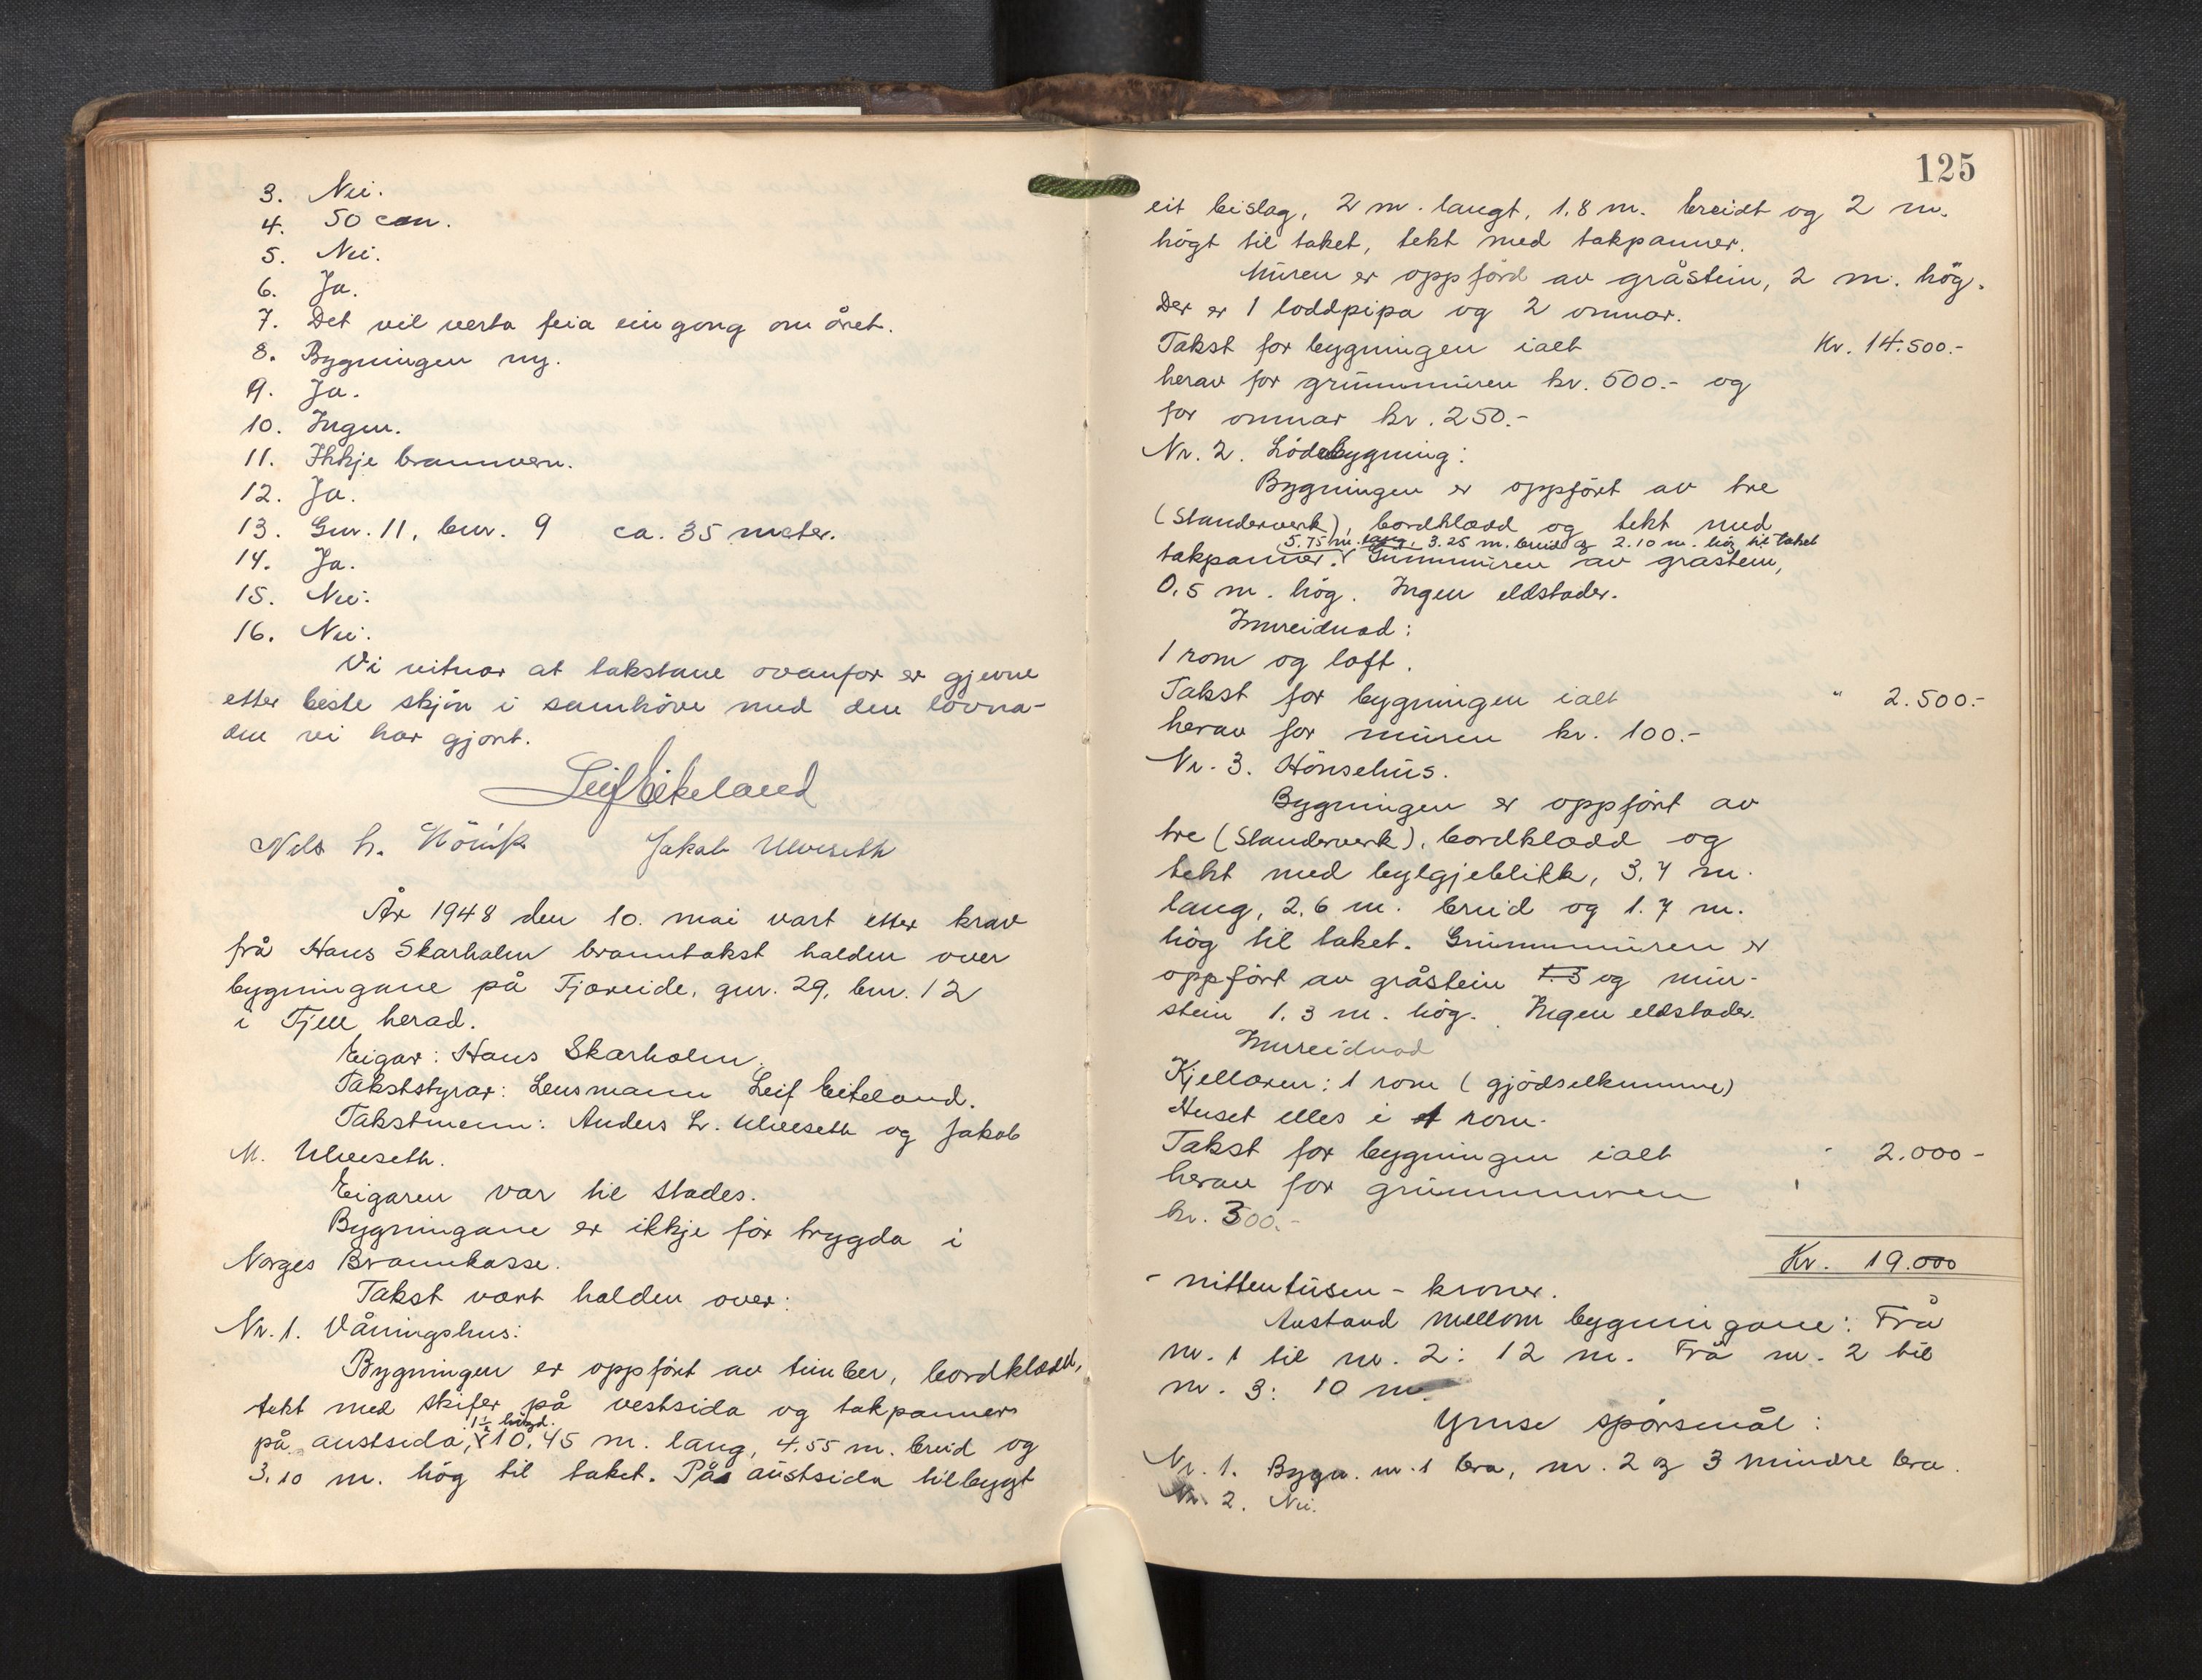 3. Nei.
4. 50 cm.
5. Nei.
6. Ja.
7. Det vil verta feia ein gong om året.
8. Bygningen ny.
9. Ja.
10. Ingen.
11. Ikkje brannvern.
12. Ja.
13. Gnr. 11, bnr. 9 ca. 35 meter.
14. Ja.
15. Nei.
16. Nei.
Vi vitnar at takstane ovanfor er gjevne
etter beste skjön i samhöve med den lovna-
den vi har gjort.
Leif Eikeland
Nils h. Jakob Ulveseth
År 1948 den 10. mai vart etter krav
frå Hans Skarholm branntakst halden over
bygningane på Fjæreide, gnr. 29, bnr. 12
i Fjell herad.
Eigar: Hans Skarholm.
Takststyrar: Lensmann Leif Eikeland.
Takstmenn: Anders L. Ulveseth og Jakob
M. Ulveseth.
Eigaren var til stades.
Bygningane er ikkje för trygda i
Norges Brannkasse.
Takst vart halden over:
Nr. 1. Våningshus:
Bygningen er oppfört av timber, bordklædd,
tekt med skifer på vestsida og takpanner
1½ högd.
på austsida, 10,45 m. lang, 4.55 m. breid og
3.10 m. hög til taket. På austsida tilbygt
125
eit bislag, 2 m. langt, 1.8 m. breidt og 2 m.
högt til taket, tekt med takpanner.
Muren er oppförd av gråstein, 2 m. hög.
Der er 1 loddpipa og 2 omnar.
Takst for bygningen ialt Kr. 14.500.-
herav for grunnmuren kr. 500.- og
for omnar kr. 250.-
Nr. 2. Lödebygning:
Bygningen er oppfört av tre
(Standerverk), bordklædd og tekt med
5.75 m. lang, 3.25 m. breid og 2.10 m. hög til taket
takpanner. Grunnmuren av gråstein,
0.5 m. hög. Ingen eldstader.
Innreidnad:
1 rom og loft.
Takst for bygningen ialt " 2.500.-
herav for muren kr. 100.-
Nr. 3. Hönsehus.
Bygningen er oppfört av
tre (Standerverk), bordklædd og
tekt med bylgjeblikk, 3.4 m.
lang, 2.6 m. breid og 1.7 m.
hög til taket. Grunnmuren er
oppfört av gråstein 1.3 og mur-
stein 1.3 m. hög. Ingen eldstader.
Innreidnad
Kjellaren: 1 rom (gjödselkumme)
Huset elles i 1 rom.
Takst for bygningen ialt " 2.000-
herav for grunnmuren
kr. 300.-
Kr. 19.000
- nittentusen - kroner.
Avstand mellom bygningane: Frå
nr. 1 til nr. 2: 12 m. Frå nr. 2 til
nr. 3: 10 m.
Ymse spörsmål:
Nr. 1. Bygn. nr. 1 bra, nr. 2 og 3 mindre bra.
Nr. 2. Nei.